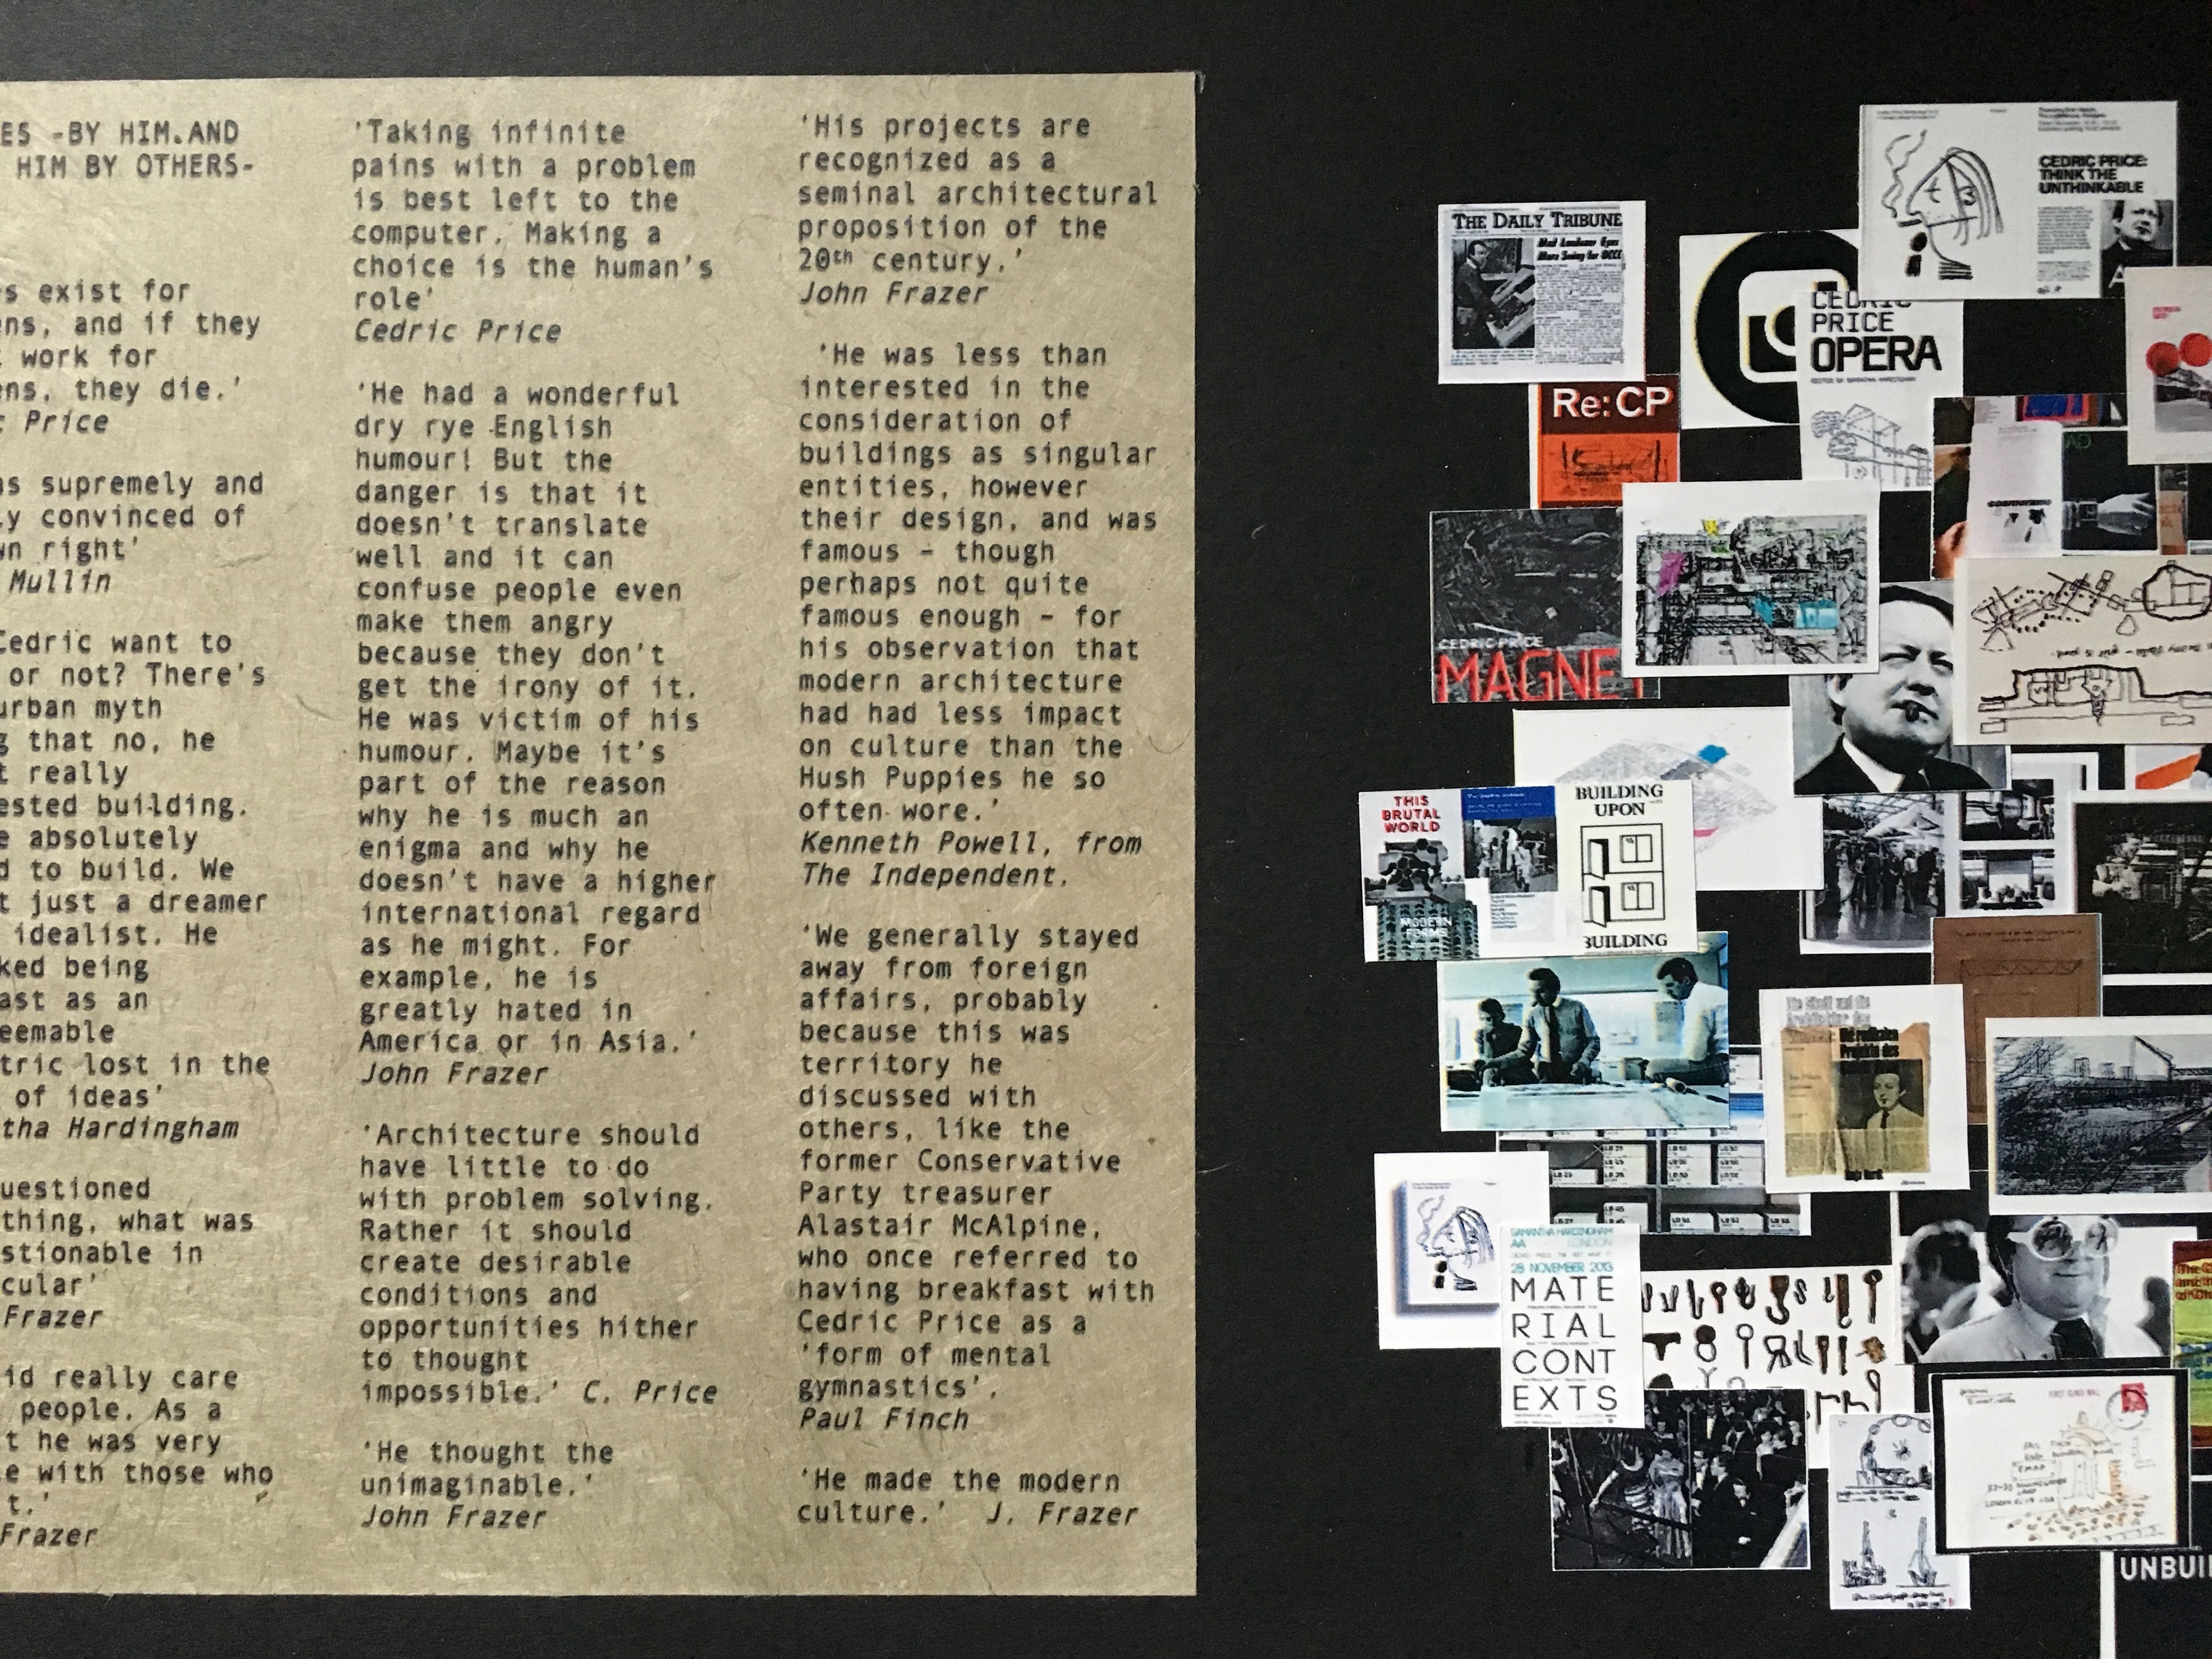 ES -BY HIM.AND
HIM BY OTHERS-
s exist for
ens, and if they
work for
ens, they die.'
c Price
as supremely and
ly convinced of
wn right'
Mullin
Cedric want to
or not? There's
urban myth
g that no, he
t really
ested building.
e absolutely
d to build. We
t just a dreamer
idealist. He
ked being
ast as an
eemable
tric lost in the
of ideas'
tha Hardingham
uestioned
thing, what was
stionable in
cular'
Frazer
id really care
people. As a
t he was very
e with those who
t.'
Frazer
'Taking infinite
pains with a problem
is best left to the
computer. Making a
choice is the human's
role'
Cedric Price
'He had a wonderful
dry rye English
humour! But the
danger is that it
doesn't translate
well and it can
confuse people even
make them angry
because they don't
get the irony of it.
He was victim of his
humour. Maybe it's
part of the reason
why he is much an
enigma and why he
doesn't have a higher
international regard
as he might. For
example, he is
greatly hated in
America or in Asia.'
John Frazer
'Architecture should
have little to do
with problem solving.
Rather it should
create desirable
conditions and
opportunities hither
to thought
impossible.' C. Price
'He thought the
unimaginable.'
John Frazer
'His projects are
recognized as a
seminal architectural
proposition of the
20th century.'
John Frazer
'He was less than
interested in the
consideration of
buildings as singular
entities, however
their design, and was
famous – though
perhaps not quite
famous enough – for
his observation that
modern architecture
had had less impact
on culture than the
Hush Puppies he so
often wore.'
Kenneth Powell, from
The Independent.
'We generally stayed
away from foreign
affairs, probably
because this was
territory he
discussed with
others, like the
former Conservative
Party treasurer
Alastair McAlpine,
who once referred to
having breakfast with
Cedric Price as a
'form of mental
gymnastics'.
Paul Finch
'He made the modern
culture.' J. Frazer
CEDRIC PRICE:
THINK THE
UNTHINKABLE
THE DAILY TRIBUNE
Mad Londoner Eyes
More Swing for OCCC
CEDRIC
PRICE
OPERA
Re:CP
CEDRIC PRICE
MAGNET
THIS
BRUTAL
WORLD
MODERN
FORMS
BUILDING
UPON
BUILDING
Projekte des
SAMANTHA HARDINGHAM
AA LONDON
28 NOVEMBER 2013
MATE
RIAL
CONT
EXTS
UNBUI